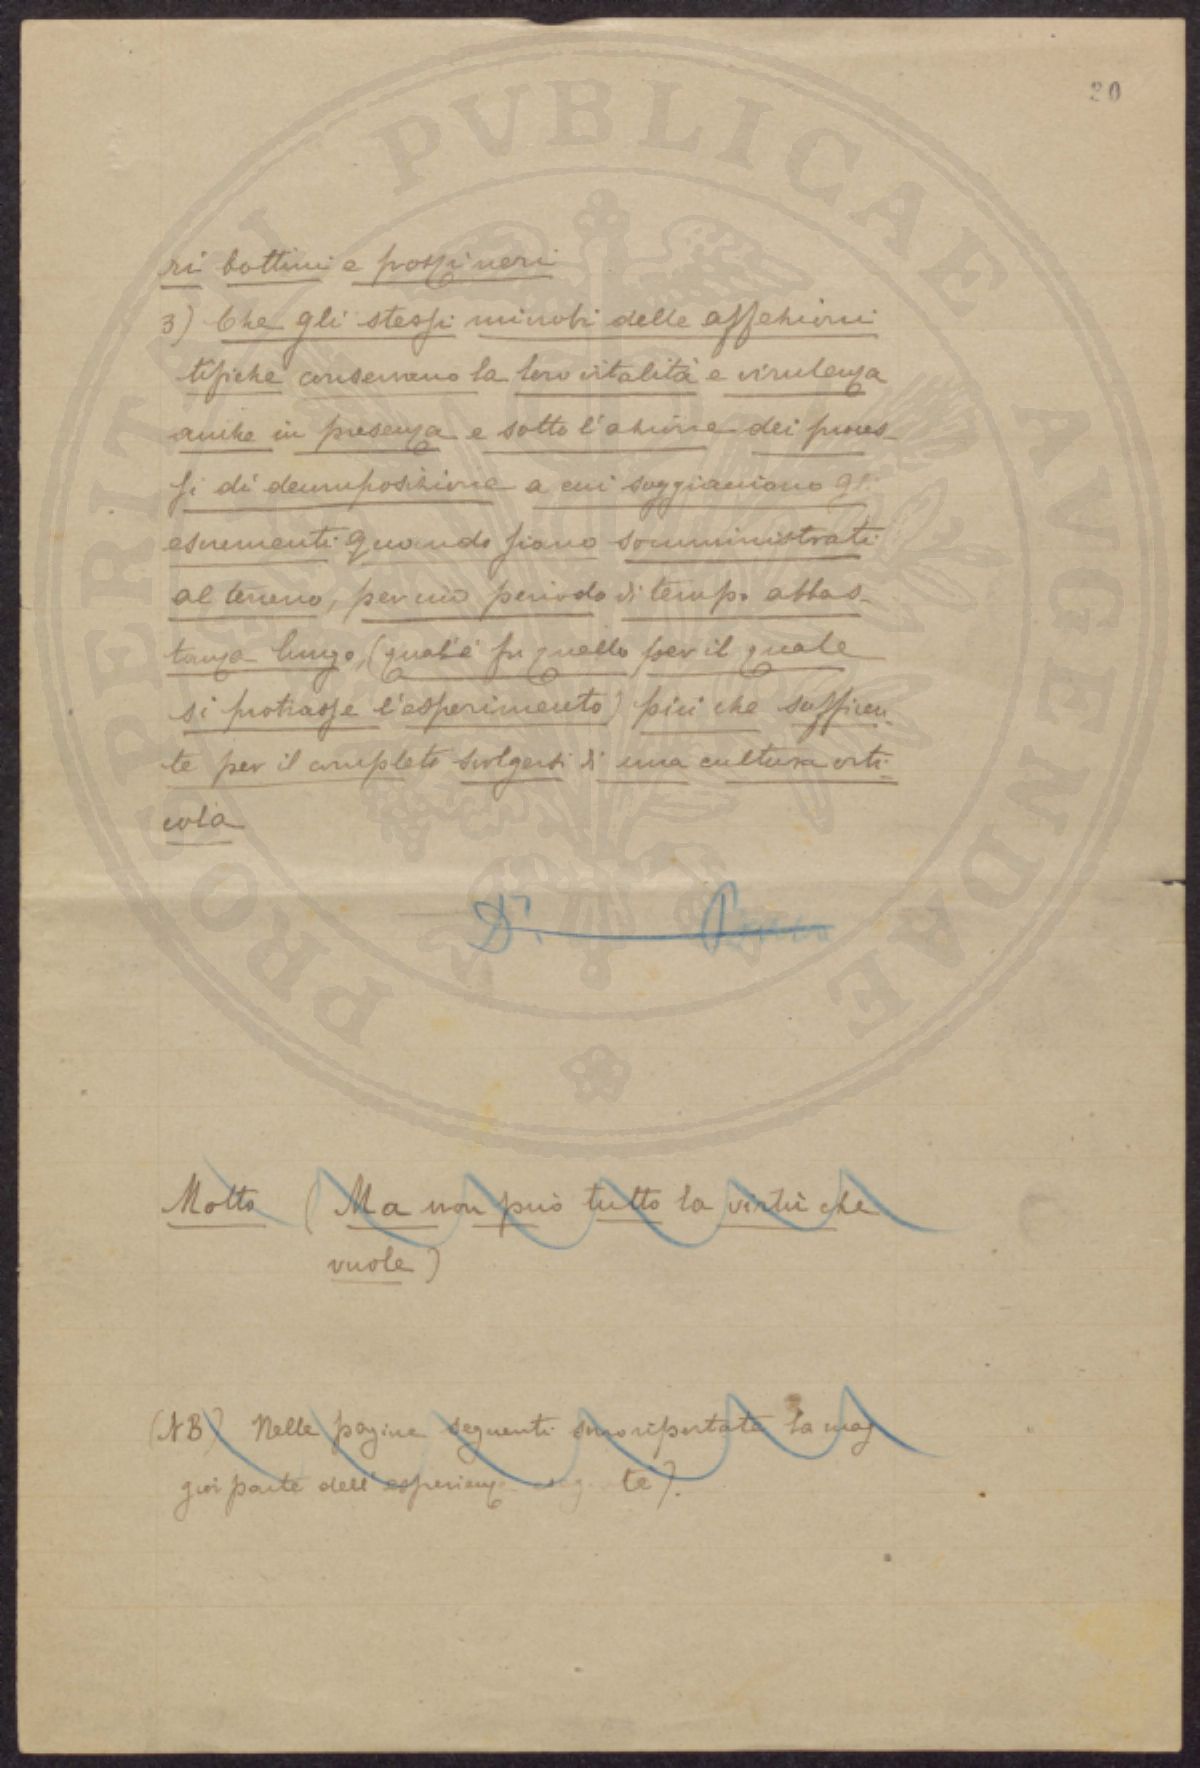 20
PROSPERITATI PVBLICAE AVGENDAE
ri bottini e pozzi neri
3) Che gli stessi microbi delle affezioni
tifiche conservano la loro vitalità e virulenza
anche in presenza e sotto l'azione dei proces-
si di decomposizione a cui soggiacciono gli
escrementi quando siano somministrati
al terreno, per un periodo di tempo abbas-
tanza lungo, (qual'è fu quello per il quale
si protrasse l'esperimento) più che sufficien-
te per il completo svolgersi di una cultura orti-
cola
Dr.
Motto (Ma non può tutto la virtù che
vuole)
(NB) Nelle pagine seguenti sono riportate la mag
gior parte dell'esperienze te).